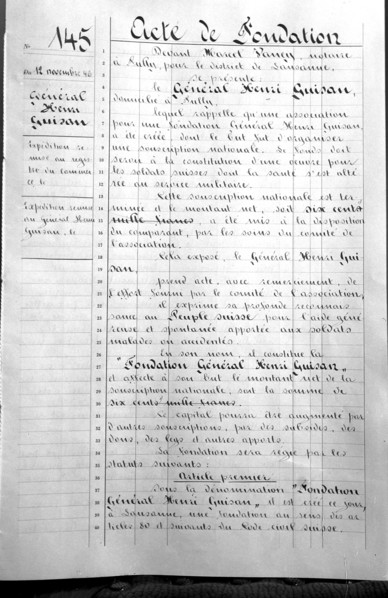 Acte de Fondation
No 145
du 12 novembre 40
Général
Henri
Guisan
Expédition re-
mise au regis-
tre du commer-
ce le
Expédition remise
au général Henri
Guisan, le
Devant Marcel notaire
à Pully, pour le district de Lausanne,
se présente :
le Général Henri Guisan,
domicilié à Pully,
lequel rappelle qu'une association
pour une Fondation Général Henri Guisan,
a été créée, dont le but fut d'organiser
une souscription nationale. Le fonds doit
servir à la constitution d'une œuvre pour
les soldats suisses dont la santé s'est alté-
rée au service militaire.
Cette souscription nationale est ter-
minée et le montant net, soit six cents
mille francs, a été mis à la disposition
du comparant, par les soins du comité de
l'association.
Cela exposé, le Général Henri Gui-
san,
prend acte, avec remerciement, de
l'effort fourni par le comité de l'association,
il exprime sa profonde reconnais-
sance au Peuple suisse pour l'aide géné-
reuse et spontanée apportée aux soldats
malades ou accidentés.
En son nom, il constitue la
"Fondation Général Henri Guisan"
et affecte à son but le montant net de la
souscription nationale, soit la somme de
six cents mille francs.
Le capital pourra être augmenté par
d'autres souscriptions, par des subsides, des
dons, des legs et autres apports.
La fondation sera régie par les
statuts suivants :
Article premier
Sous la dénomination "Fondation
Général Henri Guisan", il est créé ce jour,
à Lausanne, une fondation au sens des ar-
ticles 80 et suivants du Code civil suisse.